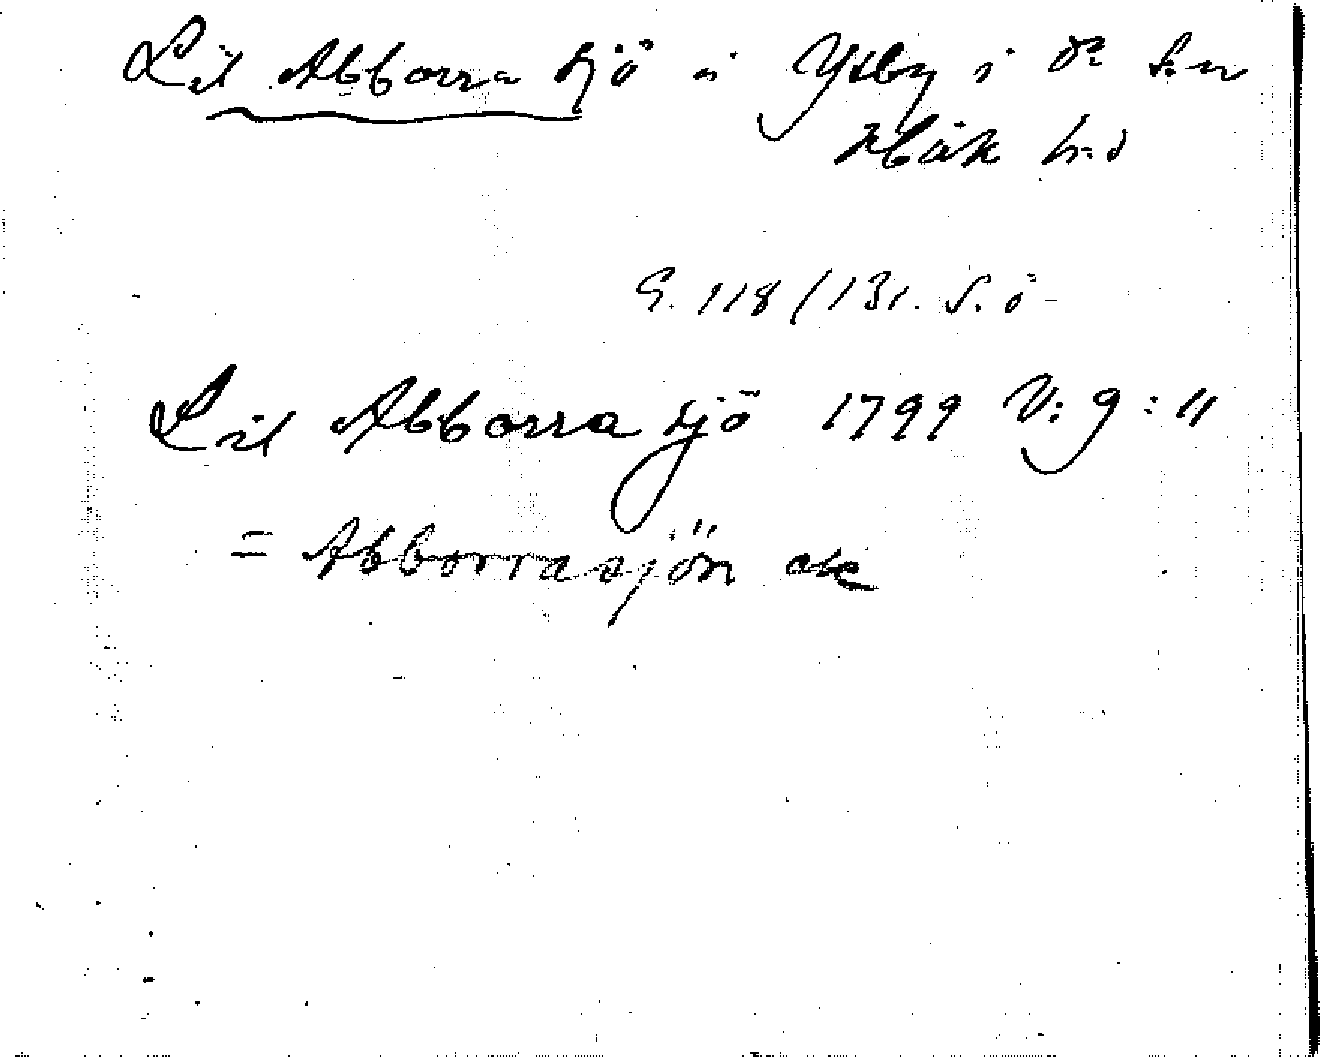 Lil Abborra sjö i Ytby i d:o s:n
Håk h:d
G. 118/131. S. ö
Lil Abborra sjö 1799 V: g: 11
= Abborrasjön ek